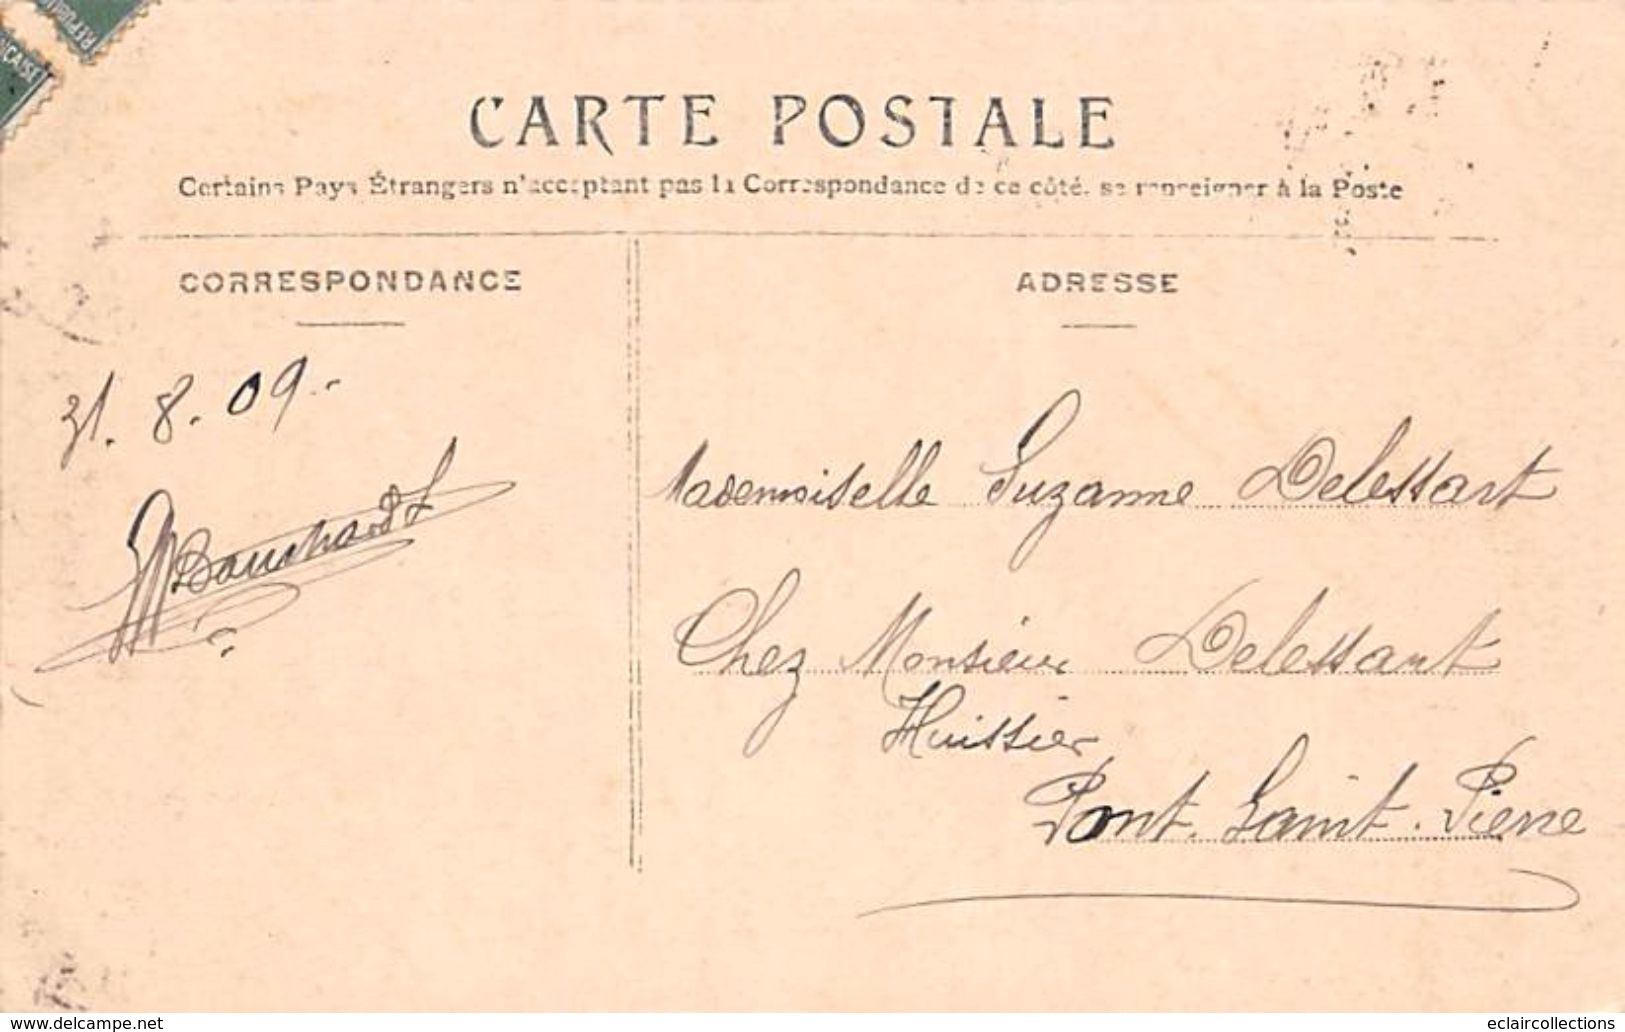 RÉPUBLIQUE
FRANÇAISE
CARTE POSTALE
Certains Pays Étrangers n'acceptant pas la Correspondance de ce côté. se renseigner à la Poste
CORRESPONDANCE
31. 8. 09.-
ADRESSE
Mademoiselle Suzanne Delessart
Chez Monsieur Delessart
Huissier
Pont. Saint. Pierre
www.delcampe.net
eclaircollections